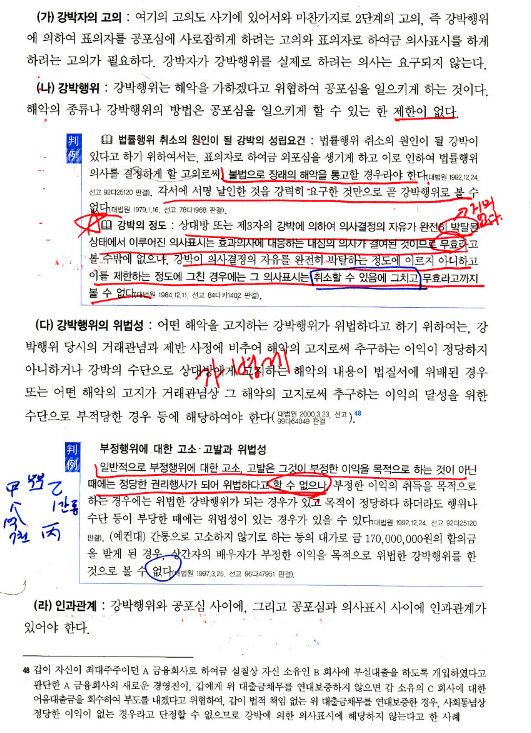 (가) 강박자의 고의 : 여기의 고의도 사기에 있어서와 마찬가지로 2단계의 고의, 즉 강박행위
에 의하여 표의자를 공포심에 사로잡히게 하려는 고의와 표의자로 하여금 의사표시를 하게
하려는 고의가 필요하다. 강박자가 강박행위를 실제로 하려는 의사는 요구되지 않는다.
(나) 강박행위 : 강박행위는 해악을 가하겠다고 위협하여 공포심을 일으키게 하는 것이다.
해악의 종류나 강박행위의 방법은 공포심을 일으키게 할 수 있는 한 제한이 없다.
판례
법률행위 취소의 원인이 될 강박의 성립요건 : 법률행위 취소의 원인이 될 강박이
있다고 하기 위하여서는, 표의자로 하여금 외포심을 생기게 하고 이로 인하여 법률행위
의사를 결정하게 할 고의로써 불법으로 장래의 해악을 통고할 경우라야 한다(대법원 1992,12,24,
선고 92다25120 판결). 각서에 서명 날인한 것을 강력히 요구한 것만으로 곧 강박행위로 볼 수
없다(대법원 1979,1,16, 선고 78다1968 판결).
강박의 정도 : 상대방 또는 제3자의 강박에 의하여 의사결정의 자유가 완전히 박탈된
거의 없다.
상태에서 이루어진 의사표시는 효과의사에 대응하는 내심의 의사가 결여된 것이므로 무효라고
볼 수밖에 없으나, 강박이 의사결정의 자유를 완전히 박탈하는 정도에 이르지 아니하고
이를 제한하는 정도에 그친 경우에는 그 의사표시는 취소할 수 있음에 그치고 무효라고까지
볼 수 없다(대법원 1984,12,11, 선고 84다카1402 판결).
(다) 강박행위의 위법성 : 어떤 해악을 고지하는 강박행위가 위법하다고 하기 위하여는, 강
박행위 당시의 거래관념과 제반 사정에 비추어 해악의 고지로써 추구하는 이익이 정당하지
아니하거나 강박의 수단으로 상대방에게 고지하는 해악의 내용이 법질서에 위배된 경우
또는 어떤 해악의 고지가 거래관념상 그 해악의 고지로써 추구하는 이익의 달성을 위한
수단으로 부적당한 경우 등에 해당하여야 한다(대법원 2000,3,23, 선고 99다64049 판결).48
판례
부정행위에 대한 고소·고발과 위법성
일반적으로 부정행위에 대한 고소, 고발은 그것이 부정한 이익을 목적으로 하는 것이 아닌
때에는 정당한 권리행사가 되어 위법하다고 할 수 없으나, 부정한 이익의 취득을 목적으로
하는 경우에는 위법한 강박행위가 되는 경우가 있고 목적이 정당하다 하더라도 행위나
수단 등이 부당한 때에는 위법성이 있는 경우가 있을 수 있다(대법원 1992,12,24, 선고 92다25120
판결). (예컨대) 간통으로 고소하지 않기로 하는 등의 대가로 금 170,000,000원의 합의금
을 받게 된 경우, 상간자의 배우자가 부정한 이익을 목적으로 위법한 강박행위를 한
것으로 볼 수 없다(대법원 1997,3,25, 선고 96다47951 판결).
(라) 인과관계 : 강박행위와 공포심 사이에, 그리고 공포심과 의사표시 사이에 인과관계가
있어야 한다.
48 갑이 자신이 최대주주이던 A 금융회사로 하여금 실질상 자신 소유인 B 회사에 부실대출을 하도록 개입하였다고
판단한 A 금융회사의 새로운 경영진이, 갑에게 위 대출금채무를 연대보증하지 않으면 갑 소유의 C 회사에 대한
어음대출금을 회수하여 부도를 내겠다고 위협하여, 갑이 법적 책임 없는 위 대출금채무를 연대보증한 경우, 사회통념상
정당한 이익이 없는 경우라고 단정할 수 없으므로 강박에 의한 의사표시에 해당하지 않는다고 한 사례